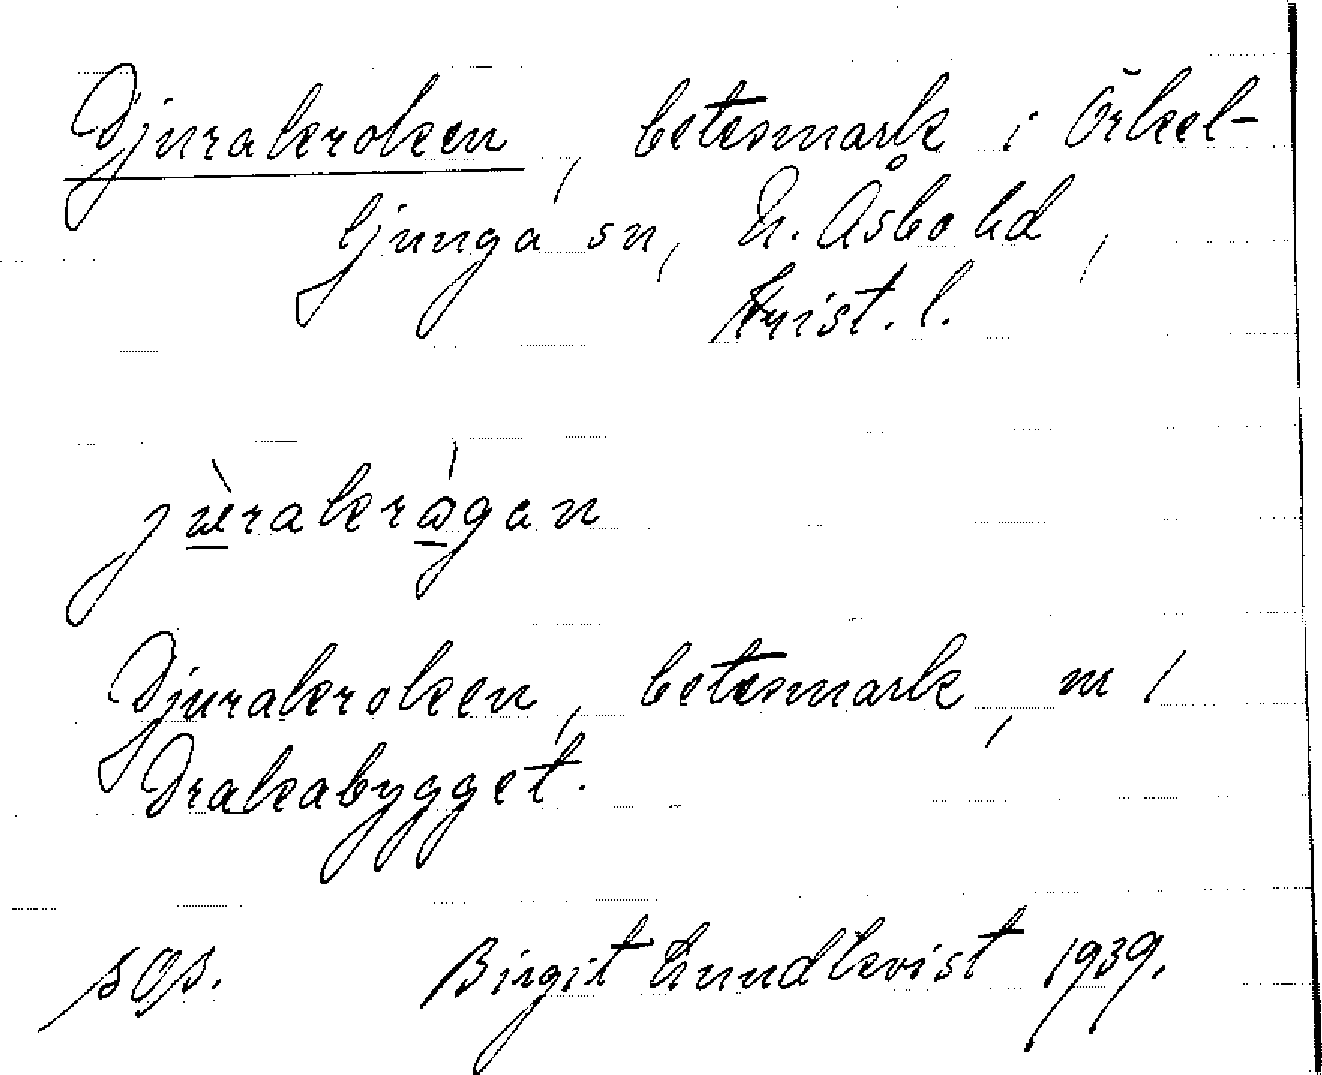 Djurakroken, betesmark i Örkel-
ljunga sn, N. Åsbo hd,
Krist. l.
jùrakrågan
Djurakroken, betesmark, m /
Drakabygget.
Birgit Lundkvist 1939.